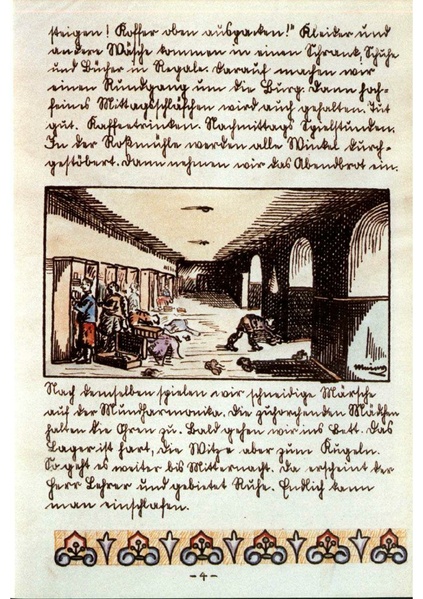 steigen! Koffer oben auspacken!" Kleider und
andere Wäsche kommen in einen Schrank, Schuhe
und Bücher in Regale. Darauf machen wir
einen Rundgang um die Burg. Dann hoch-
feines Mittagsschläfchen wird auch gehalten. Tut
gut. Kaffeetrinken. Nachmittags Spielstunden.
In der Roßmühle werden alle Winkel durch-
gestöbert. Dann nehmen wir das Abendbrot ein.
Nach demselben spielen wir schneidige Märsche
auf der Mundharmonika. Die zuhorchenden Mädchen
halten die Ohren zu. Bald gehen wir ins Bett. Das
Lager ist hart, die Witze aber zum Kugeln.
So geht es weiter bis Mitternacht. Da erscheint der
Herr Lehrer und gebietet Ruhe. Endlich kann
man einschlafen.
- 4 -